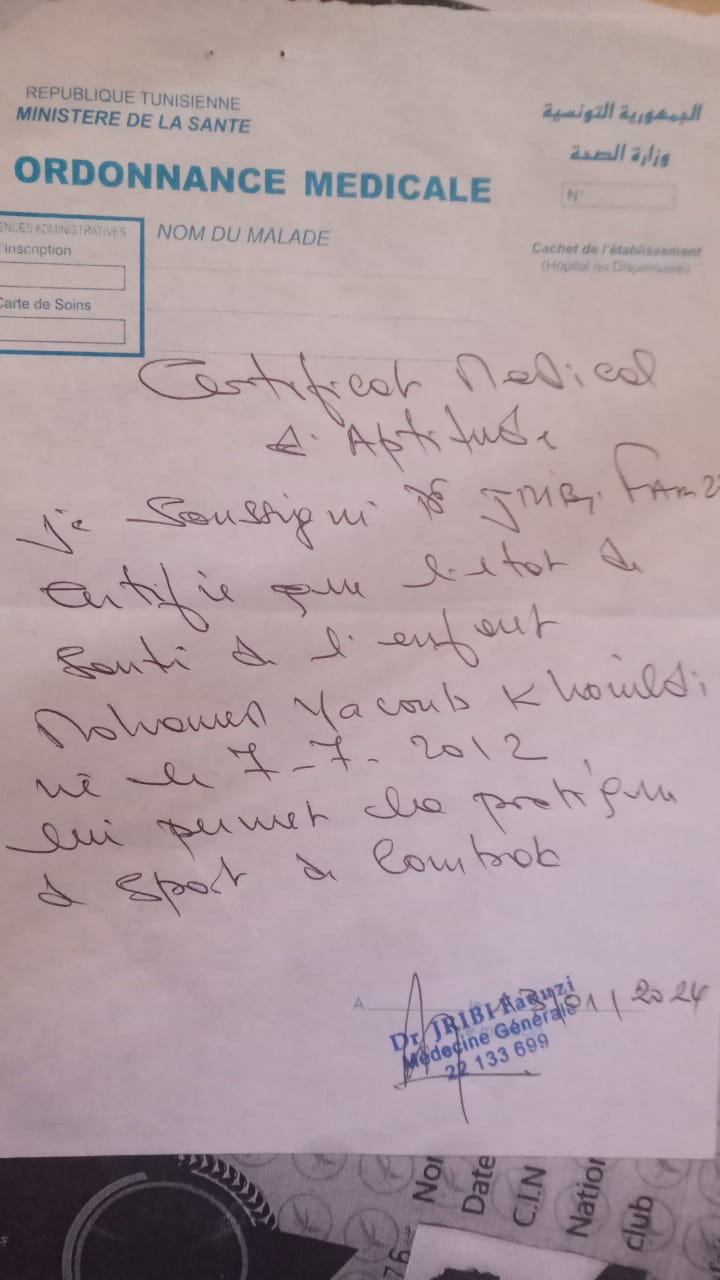 REPUBLIQUE TUNISIENNE
MINISTERE DE LA SANTE
ORDONNANCE MEDICALE
الجمهورية التونسية
وزارة الصحة
N°
Cachet de l'établissement
(Hôpital ou Dispensaire)
ENCES ADMINISTRATIVES
'Inscription
Carte de Soins
NOM DU MALADE
Certificat Medical
d'Aptitude
Je soussigni Dr JRIBI FAouZ
certifie que l'etat de
santé de l'enfant
Mohamed Yacoub Khouildi
né le 7-7-2012
lui permet de pratiquer
le sport de combat
A
/01/2024
Dr. JRIBI Faouzi
Médecine Générale
22 133 699
Nor
Date
C.I.N
Nation
club
76